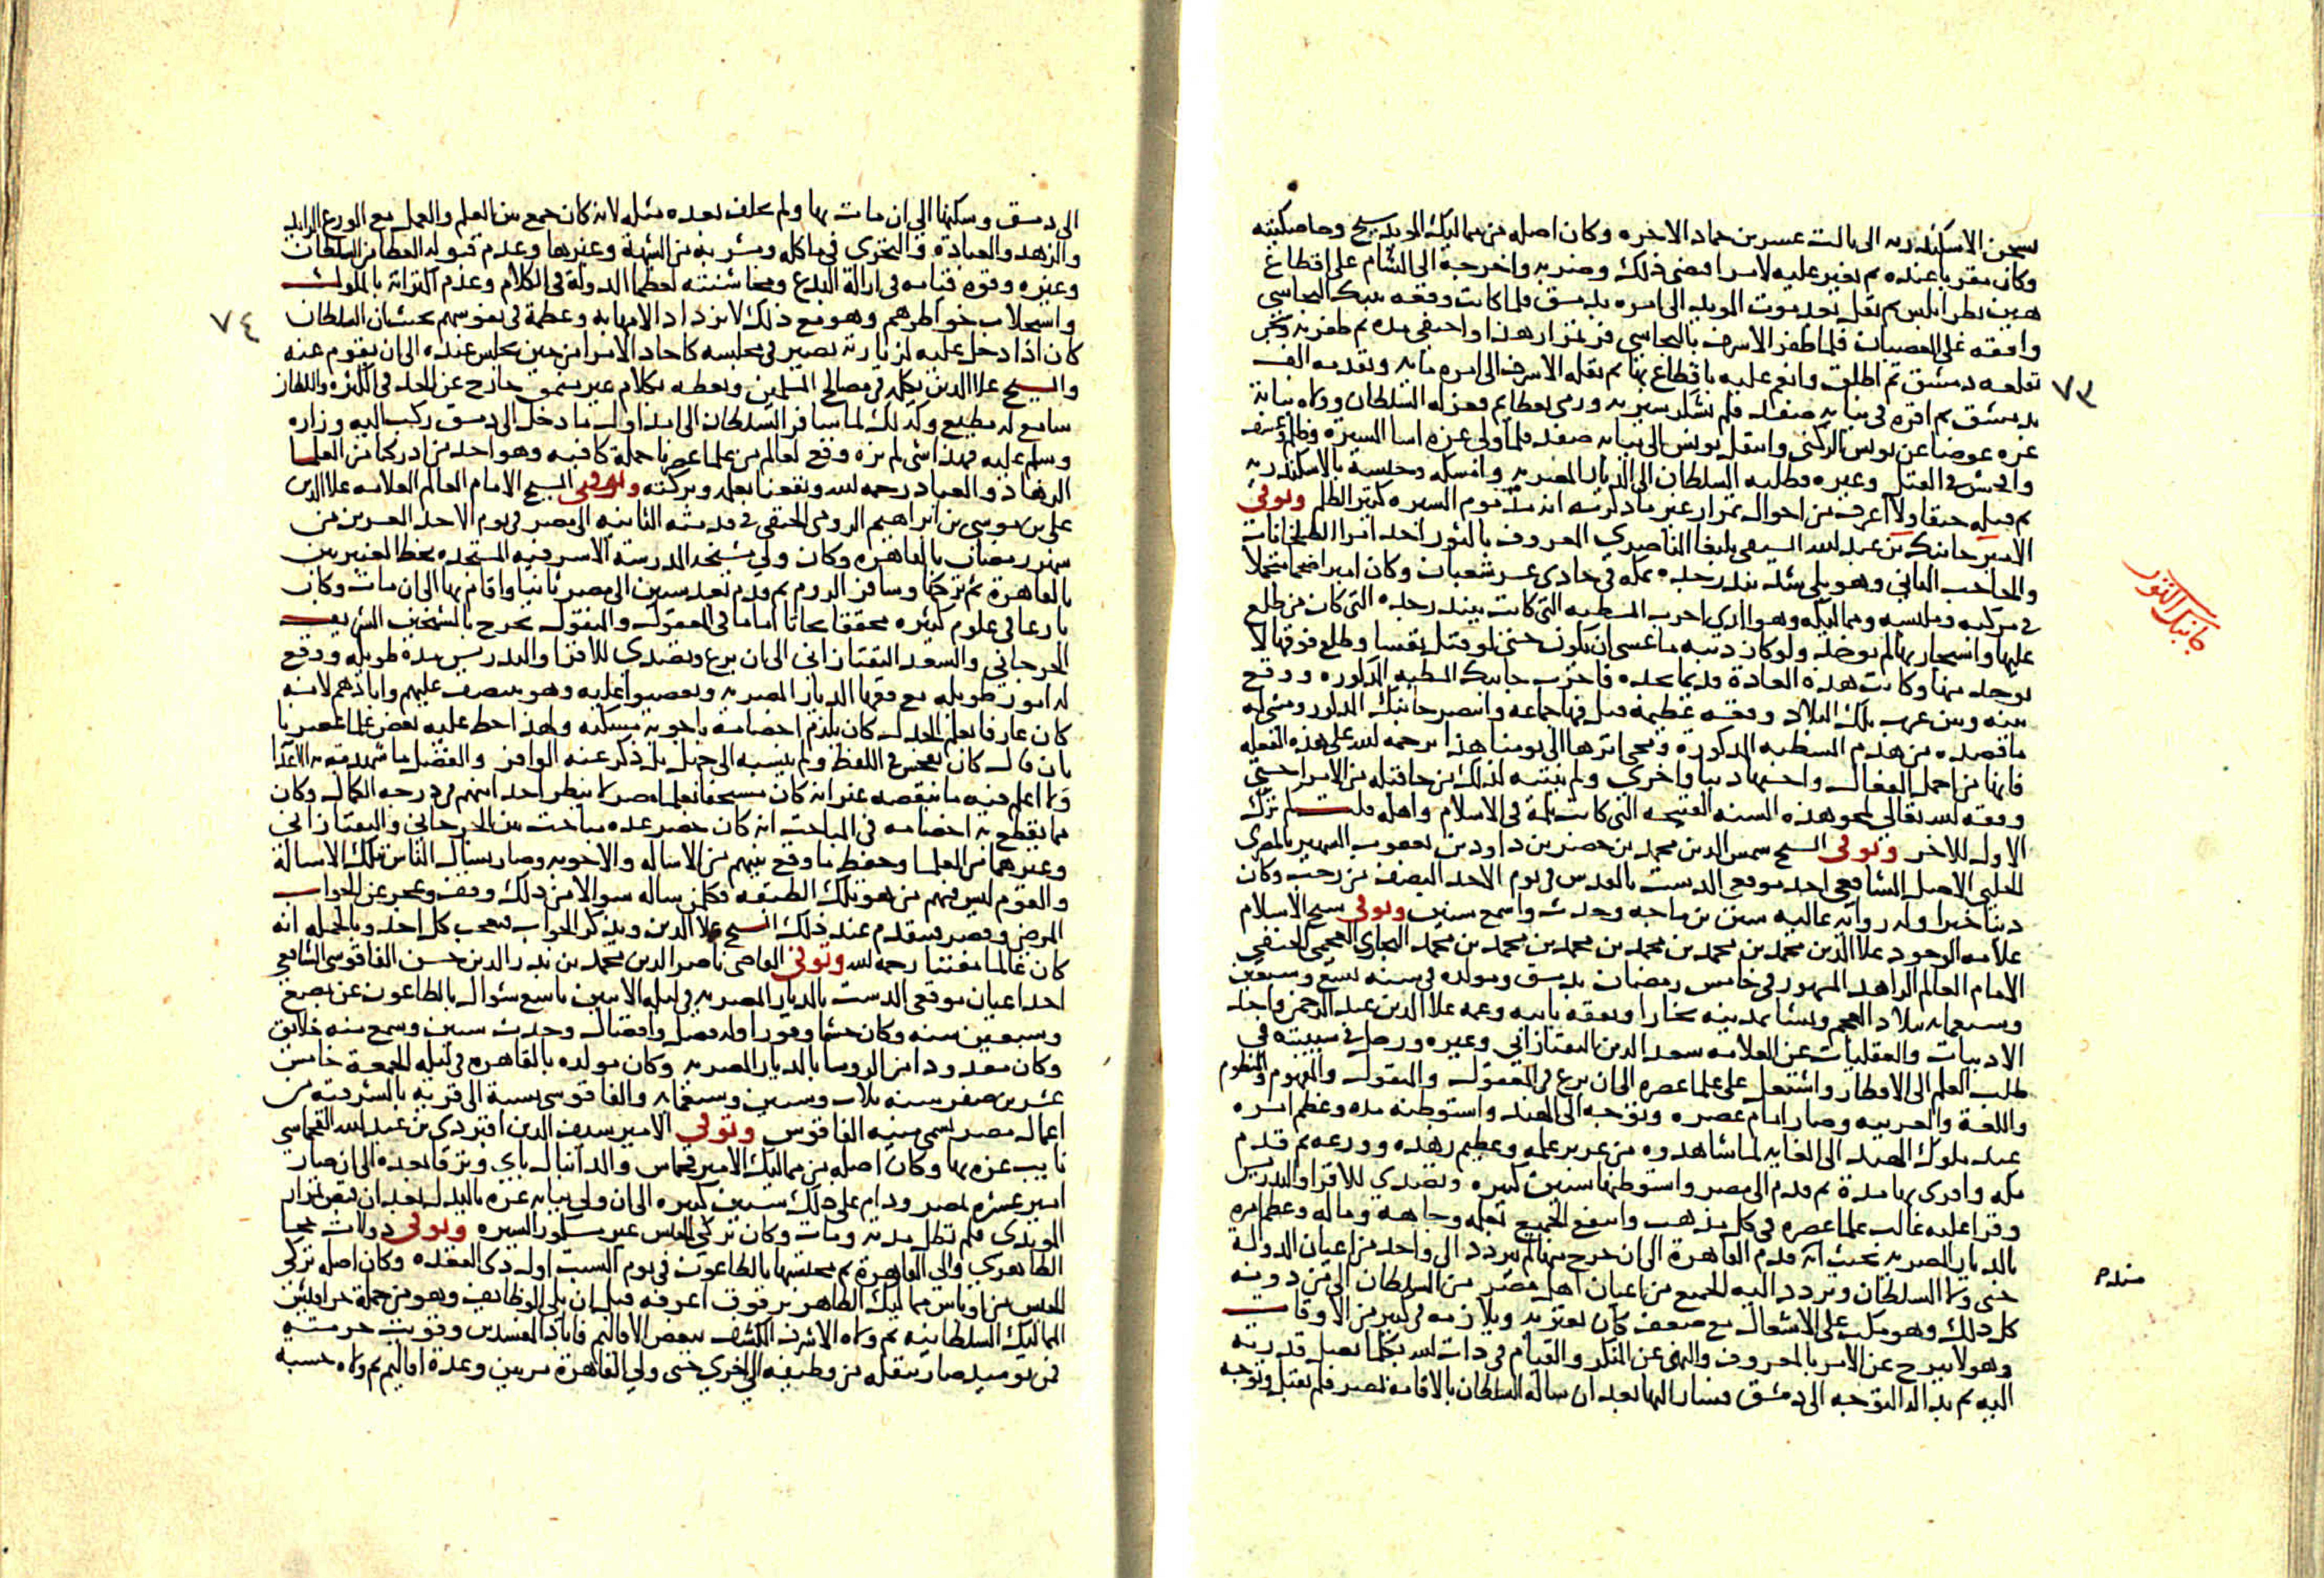 بسجن الاسكندريه الى ثالث عشرين جماد الاخره وكان اصله من مماليك المويد شيخ وخاصكيته
وكان مقربا عنده ثم تغير عليه لامر اقتضى ذلك وضربه واخرجه الى الشام على اقطاع
هين بطرابلس ثم نقل بعد موت المويد الى امره بدمشق فلما كانت وقعه تنبك البجاسي
وافقه على العصيان فلما ظفر الاشرف بالبجاسي فر تمراز هذا واختفى مده ثم ظفر به وسجن
بقلعه دمشق ثم اطلق وانعم عليه باقطاع بها ثم نقله الاشرف الى امره مايه وتقدمه الف
بدمشق ثم اقره في نيابه صفد فلم تشكر سيرته ورمى بعظايم فعزله السلطان وولاه نيابة
غزه عوضا عن يونس الركني وانتقل يونس الى نيابه صفد فلما ولى غزه اسا السيره وظلم وعسف
وافحش في القتل وغيره فطلبه السلطان الى الديار المصريه وامسكه وحبسه بالاسكندريه
ثم قتله خنقا ولا اعرف من احوال تمراز غير ما ذكرته انه مذموم السيره كثير الظلم وتوفي
الامير جانبك بن عبد الله السيفي يلبغا الناصري المعروف بالثور احد امرا الطبلخانات
والحاجب الثاني وهو يلي شد بندر جده بمكه في حادي عشر شعبان وكان اميرا ضخما متجملا
في مركبه وملبسه ومماليكه وهو الذي اخرب المسطبه التي كانت ببندر جده التي كان من طلع
عليها واستجار بها لم يوخذ ولو كان ذنبه ما عسى ان يكون حتى لو قتل نفسا وطلع فوقها لا
يوخذ منها وكانت هذه العادة قديما بجده فاخرب جانبك المسطبه المذكوره ووقع
بينه وبين عرب تلك البلاد وقعه عظيمة قتل فيها جماعه وانتصر جانبك المذكور ومشى له
ما قصده من هدم المسطبه المذكورة ومحى اثرها الى يومنا هذا يرحمه الله على هذه الفعله
فانها من اجمل الفعال واحسنها دنيا واخرى ولم ينتبه لذلك من جا قبله من الامرا حتى
وفقه الله تعالى لمحو هذه السنه القبيحه التي كانت ثلمة في الاسلام واهله قلت كم ترك
الاول للاخر وتوفي الشيخ شمس الدين محمد بن خضر بن داود بن يعقوب الشهير بالمصرى
الحلبى الاصل الشافعى احد موقعى الدست بالقدس في يوم الاحد النصف من رجب وكان
دينا خيرا وله روايه عاليه سنن بن ماجه وحدث واسمع سنين وتوفي شيخ الاسلام
علامه الوجود علا الدين محمد بن محمد بن محمد بن محمد بن محمد بن محمد البخاري العجمي الحنفي
الامام العالم الزاهد المشهور في خامس رمضان بدمشق ومولده في سنه تسع وسبعين
وسبعمايه ببلاد العجم ونشا بمدينه بخارا وتفقه بابيه وعمه علا الدين عبد الرحمن واخذ
الادبيات والعقليات عن العلامه سعد الدين التفتازاني وغيره ورحل في شبيبته في
طلب العلم الى الاقطار واشتغل على علما عصره الى ان برع في المعقول والمنقول والمفهوم والمنظوم
واللغة والعربيه وصار امام عصره وتوجه الى الهند واستوطنه مده وعظم امره
عند ملوك الهند الى الغايه لما شاهدوه من غزير علمه وعظيم زهده وورعه ثم قدم
مكه واقرى بها مدة ثم قدم الى مصر واستوطنها سنين كثيره وتصدي للاقرا والتدريس
وقرا عليه غالب علما عصره في كل مذهب وانتفع الجميع بعلمه وجاهه وماله وعظم امره
بالديار المصريه بحيث انه قدم القاهرة الى ان خرج منها لم يتردد الى واحد من اعيان الدولة
حتى ولا السلطان وتردد اليه الجميع من اعيان اهل مصر من السلطان الى من دونه
كل ذلك وهو مكب على الاشتغال مع ضعف كان يعتريه ويلازمه في كثير من الاوقات
وهو لا يبرح عن الامر بالمعروف والنهى عن المنكر والقيام في ذات الله بكلما تصل قدرته
اليه ثم بدا له التوجه الى دمشق فسار اليها بعد ان ساله السلطان بالاقامه بمصر فلم يقبل وتوجه
٧٣
جانبك الثور
منذ
الى دمشق وسكنها الى ان مات بها ولم يخلف بعده مثله لانه كان جمع بين العلم والعمل مع الورع الزايد
والزهد والعبادة والتحرى في ماكله ومشربه من الشبهة وغيرها وعدم قبوله العطا من السلطان
وغيره وقوه قيامه في ازالة البدع ومخاشنته لعظما الدولة في الكلام وعدم اكتراثه بالملوك
واستجلاب خواطرهم وهو مع ذلك لا يزداد الا مهابه وعظمة في نفوسهم بحيث ان السلطان
كان اذا دخل عليه لزيارته يصير في مجلسه كاحاد الامرا من حين يجلس عنده الى ان يقوم عنه
والشيخ علا الدين يكلمه في مصالح المسلمين ويعظه بكلام غير منمق خارج عن الحد في الكثره والسلطان
سامع له مطيع وكذلك لما سافر السلطان الى امد اول ما دخل الى دمشق ركب اليه وزاره
وسلم عليه فهذا شي لم نره وقع لعالم من علما عصرنا جملة كافيه وهو احد من ادركنا من العلما
الزهاد والعباد رحمه الله ونفعنا بعلمه وبركته وتوفي الشيخ الامام العالم العلامه علا الدين
على بن موسى بن ابراهيم الرومي الحنفي في قدمته الثانيه الى مصر في يوم الاحد العشرين من
شهر رمضان بالقاهره وكان ولي مشيخه المدرسة الاشرفيه المستجده بخط العنبريين
بالقاهرة ثم تركها وسافر الروم ثم قدم بعد سنين الى مصر ثانيا واقام بها الى ان مات وكان
بارعا في علوم كثيره محققا بحاثا اماما في المعقول والمنقول تخرج بالشيخين الشريف
الجرجاني والسعد التفتازاني الى ان برع وتصدي للاقرا والتدريس مدة طويله ووقع
له امور طويله مع فقها الديار المصريه وتعصبوا عليه وهو ينتصف عليهم واباد هم لانه
كان عارفا بعلم الجدل كان يلزم اخصامه باجوبه مسكته ولهذا احط عليه بعض علما عصرنا
بان قال كان يفحش في اللفظ ولم ينسبه الى جهل بل ذكر عنه الوافر والفضل ما شهدت به الاعدا
ولا اعلم فيه ما ينقصه غير انه كان مستخفا بعلما مصر لا ينظر احدا منهم في درجه الكمال وكان
مما يقطع به اخصامه في المباحث انه كان حضر عده مباحث بين الجرجاني والتفتازاني
وغيرهما من العلما وحفظ ما وقع بينهم من الاسئله والاجوبه وصار يسال الناس تلك الاسالة
والقوم ليس فيهم من هو تلك الطبقه فكلمن ساله سوالا من ذلك وقف وعجز عن الجواب
المرضى وقصر فيتقدم عند ذلك الشيخ علا الدين ويذكر الجواب فيعجب كل احد وبالجمله انه
كان عالما مفننا رحمه الله وتوفي القاضى ناصر الدين محمد بن بدر الدين حسن الفاقوسى الشافعي
احد اعيان موقعى الدست بالديار المصريه في ليله الاثنين تاسع شوال بالطاعون عن بضع
وسبعين سنه وكان حشما وقورا وله فضل وافضال وحدث سنين وسمع منه خلايق
وكان معدودا من الروسا بالديار المصريه وكان مولده بالقاهره في ليله الجمعة خامس
عشرين صفر سنه ثلاث وستين وسبعمايه والفاقوسى نسبة الى قريه بالشرقيه من
اعمال مصر تسمى منيه الفاقوس وتوفي الامير سيف الدين اقبردى بن عبد الله القجماسي
نايب غزه بها وكان اصله من مماليك الامير قجماس والد اينال باي وترقا بعده الى ان صار
امير عشره بمصر ودام على ذلك سنين كثيره الى ان ولى نيابه غزه بالبذل بعد ان نقل تمراز
المويدى فلم تطل مدته ومات وكان تركي الجنس غير مشكور السيره وتوفي دولات خجا
الظاهري والى القاهرة ثم محتسبها بالطاعون في يوم السبت اول ذى القعده وكان اصله تركى
الجنس من اوباش مماليك الظاهر برقوق اعرفه قبل ان يلي الوظايف وهو من جملة حرافيش
المماليك السلطانيه ثم ولاه الاشرف الكشف ببعض الاقاليم فاباد المفسدين وقويت حرمته
فمن يوميذ صار ينقله من وظيفه الى اخري حتى ولي القاهرة مرتين وعدة اقاليم ثم ولاه حسبة
٧٤